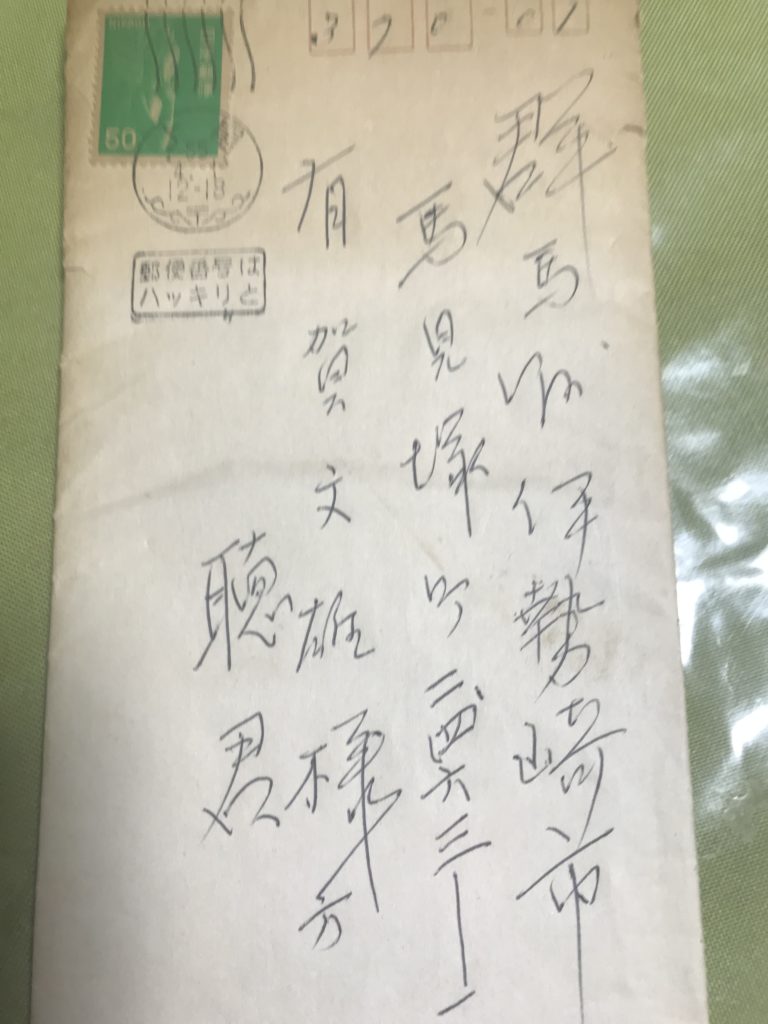 370-01
NIPPON
50
55
4. 1
12-18
郵便番号は
ハッキリと
群馬県伊勢崎市
馬見塚町二、四六三ー一
有賀文雄様方
聰君